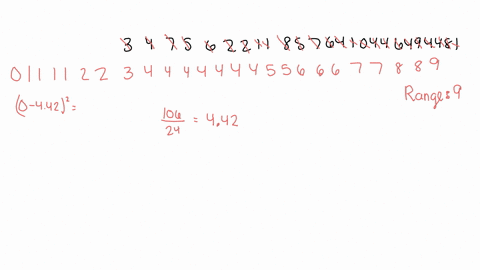 3 4 7 5 6 2 2 1 1 8 5 7 6 4 1 0 4 4 6 4 9 4 4 8 1
0 1 1 1 1 2 2 3 4 4 4 4 4 4 4 5 5 6 6 6 7 7 8 8 9
Range: 9
(0-4.42)² =
106/24 = 4.42